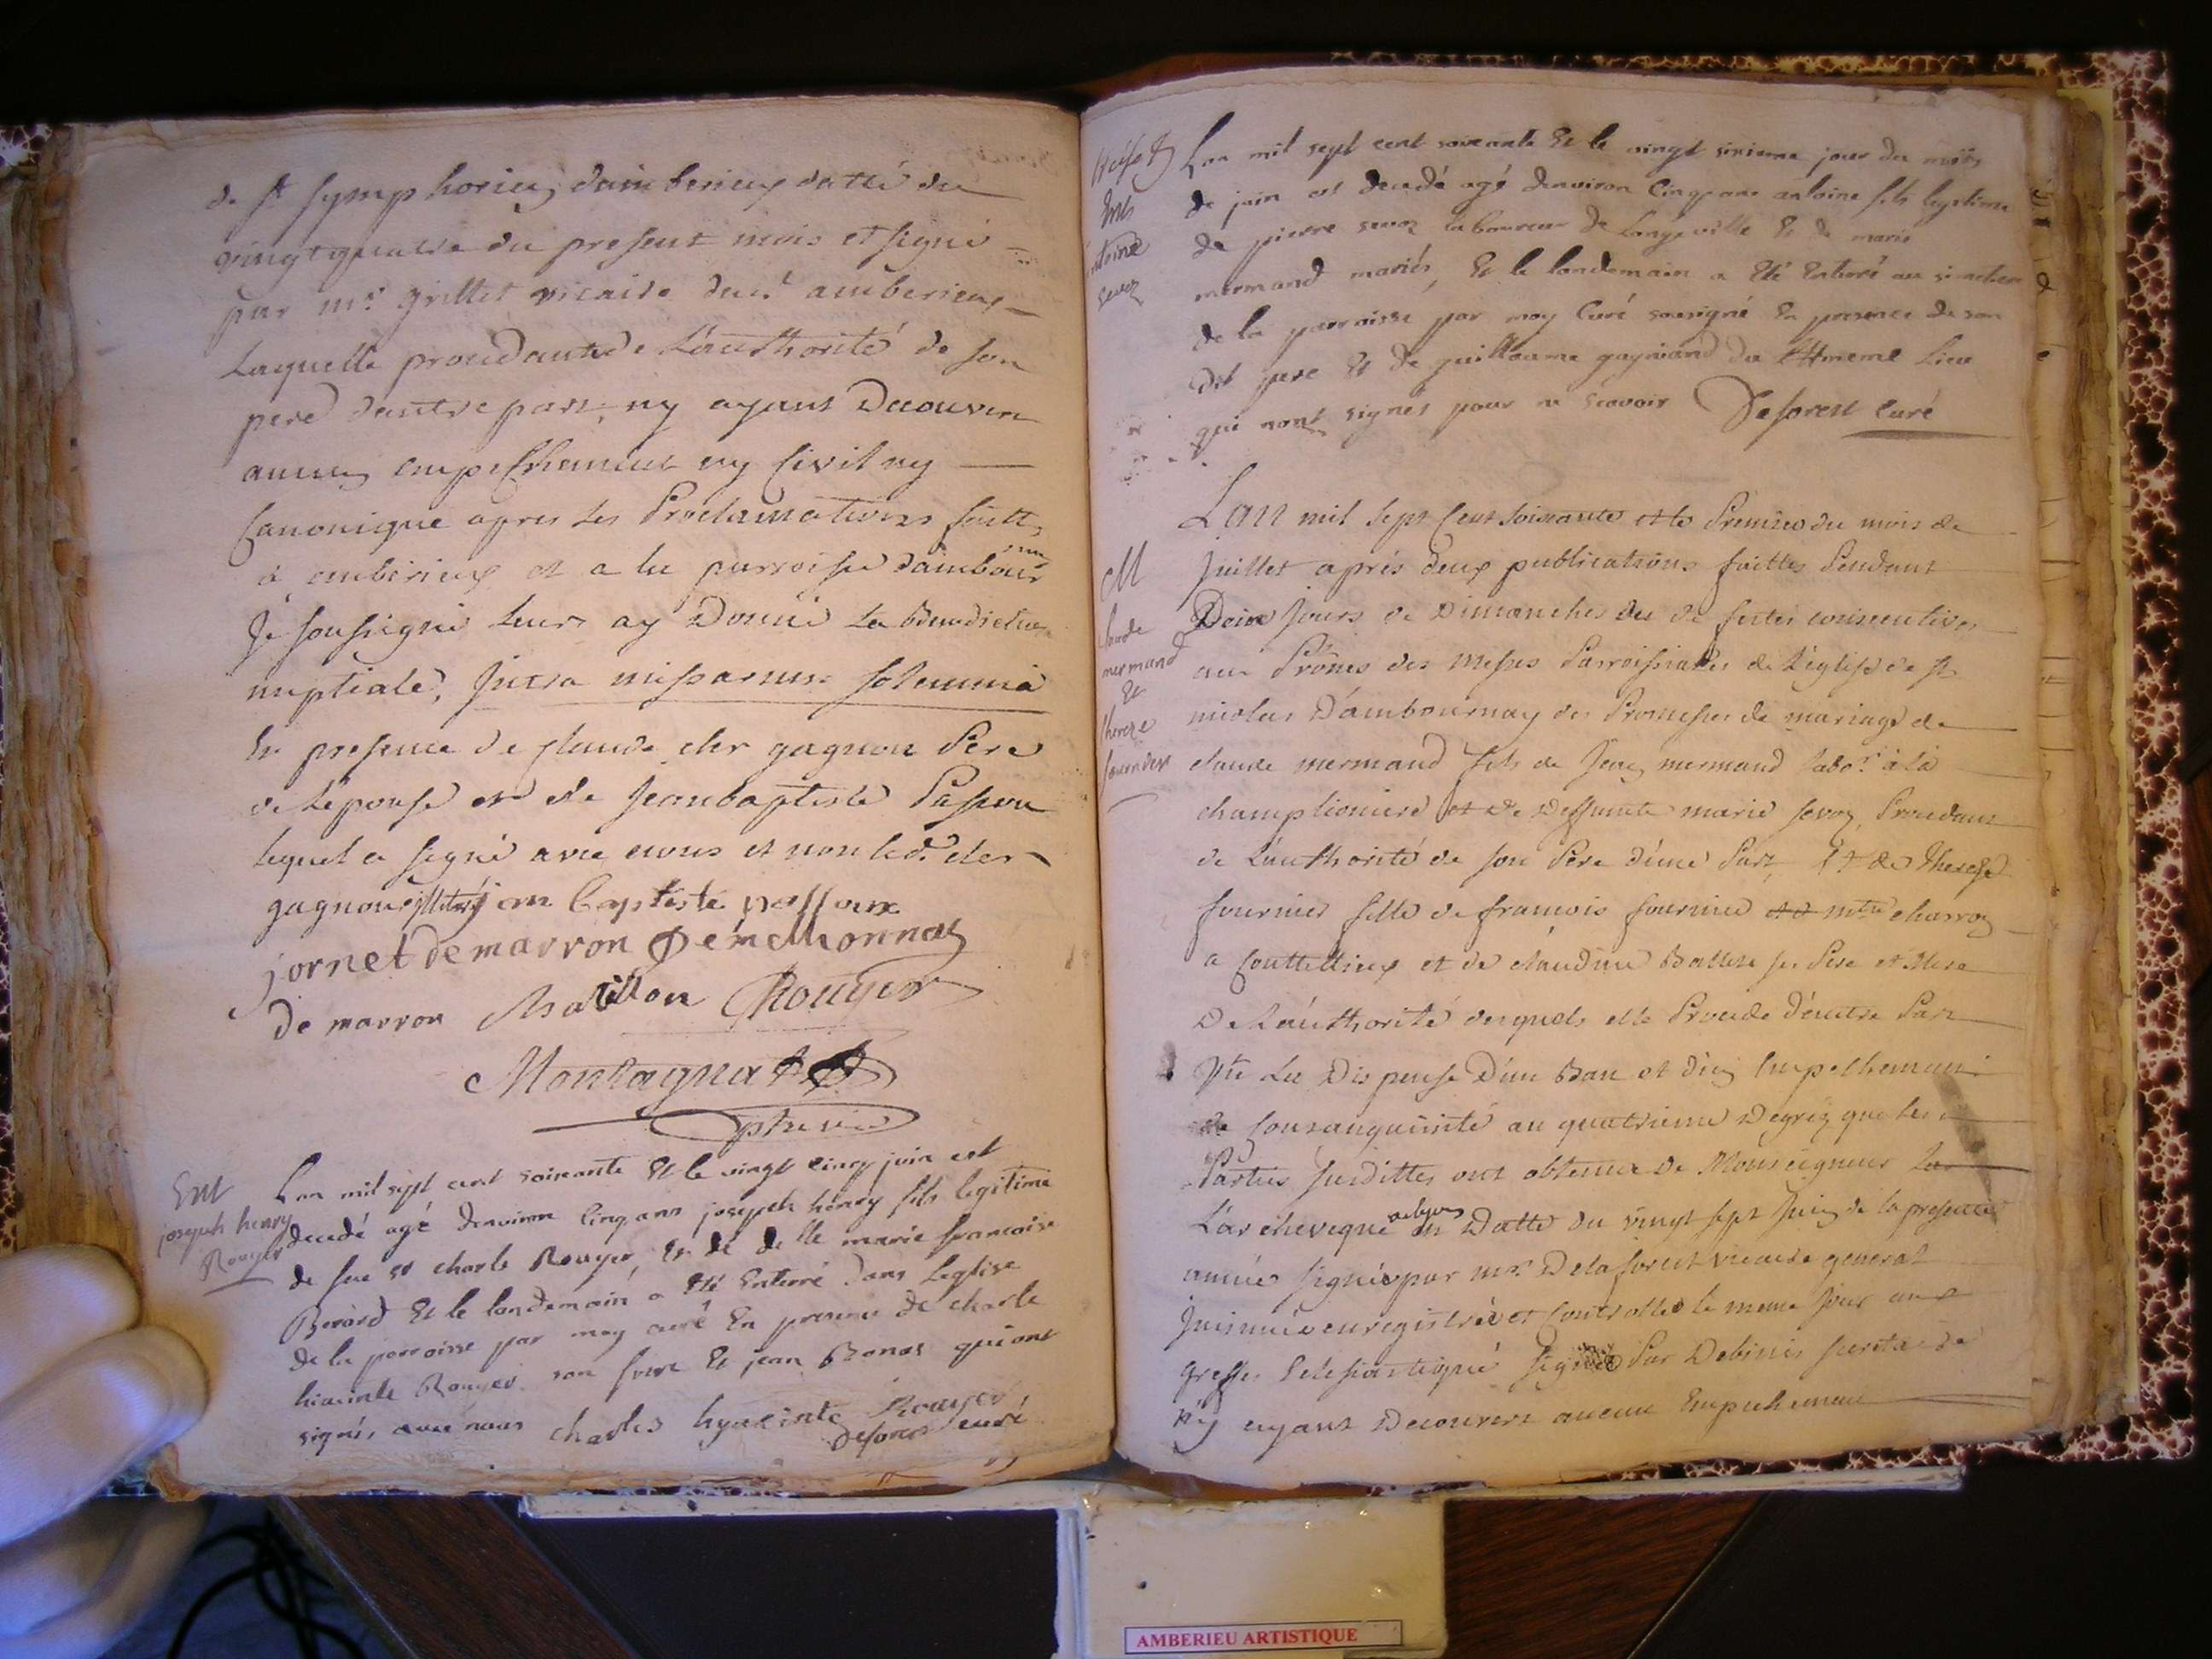 de st symphorien d'amberieux datté du
vingtquatre du present mois et signé
par mr. grillet vicaire dud. amberieux
Laquelle procedante de L'authorité de son
pere d'autre part, ny ayant Decouvert
aucun empeschement ny Civil ny
Canonique apres les Proclamations faitt
à amberieux et a la parroisse d'ambour
Je soussigné leurs ay Donné La Benediction
nuptiale, Intra missarum solemnia
En presence de claude cler gagnon Pere
de L'epouse et de Jeanbaptiste
lequel a signé avec nous et non led. cler
gagnon illitéré jean baptiste
jornet de marron
de marron Chatillon Rouyer
Montagnat
ptre vic
Ent
joseph henry
Rouyer
Lan mil sept cent soixante Et le vingt cinq juin est
decedé agé denviron cinq ans joseph henry fils legitime
de feu sr charle Rouyer, Et de delle marie francoise
Berard Et le landemain a Eté Enterré dans Leglise
de la parroisse par moy curé En presence de charle
hiacinte Rouyer son frere Et jean Bonas qui ont
signés avec nous charles hyacinte Rouyer
Deforest curé
Ent
antoine
sevoz
Lan mil sept cent soixante Et le vingt sixieme jour du mois
de juin est decedé agé denviron cinq ans antoine fils legitime
de pierre sevoz laboureur de Longeville Et de marie
mermand mariés, Et le landemain a Eté Enterré au simetiere
de la parroisse par moy Curé sousigné En presence de son
dit pere Et de guillaume gagniand du meme Lieu
qui nont signés pour ne scavoir Deforest Curé
M
claude
mermand
Et
therese
fournier
Lan mil sept Cent soixante et le Premier du mois de
Juillet aprés deux publications faittes Pendant
Deux Jours de Dimanches de festes consecutives
aux Prônes des messes Parroissiales de L'église de st
nicolas D'ambournay des Promesses de mariage de
claude mermand fils de Jean mermand labo.r à la
championiere et de Deffunte marie sevoz, Procedant
de L'authorité de son Pere d'une Part, Et de Therese
fournier fille de francois fournier mtre charron
a Couttellieux et de claudine Ballet ses Pere et Mere
De L'authorité desquels elle Procede d'autre Part
Vû La Dispense D'un Ban et d'un Empechement
de Consanguinité au quatrieme Degrez que les
Parties susdittes ont obtenue de Monseigneur
L'archeveque en Datte du vingt sept Juin de la presente
année signée par mr. Delaforest vicaire general
Insinuée enregistrée et Controllée le meme jour au
Greffe Eclesiastique signée Par Debinis secretaire
n'y ayant Decouvert aucun Empechement
AMBERIEU ARTISTIQUE